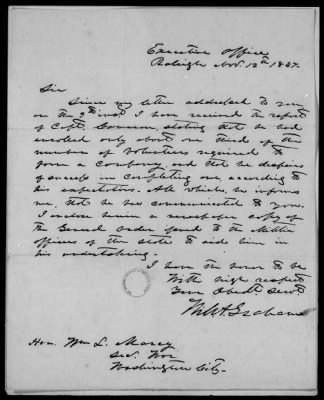 Executive Office
Raleigh Nov. 12th 1847.
Sir
Since my letter addressed to you
on the 9th inst. I have received the report
of Capt. stating that he had
enrolled only about one third of the
number of volunteers required to
form a Company and that he despairs
of success in completing one, according to
his expectations. All which, he informs
me, that he has communicated to you.
I enclose herein a newspaper copy of
the General order issued to the Militia
officers of the State to aid him in
his undertaking.
I have the honor to be
With high respect
Your Obedt. Servt.
Will. A. Graham
Hon. Wm L. Marcy
Sec. War
Washington City.